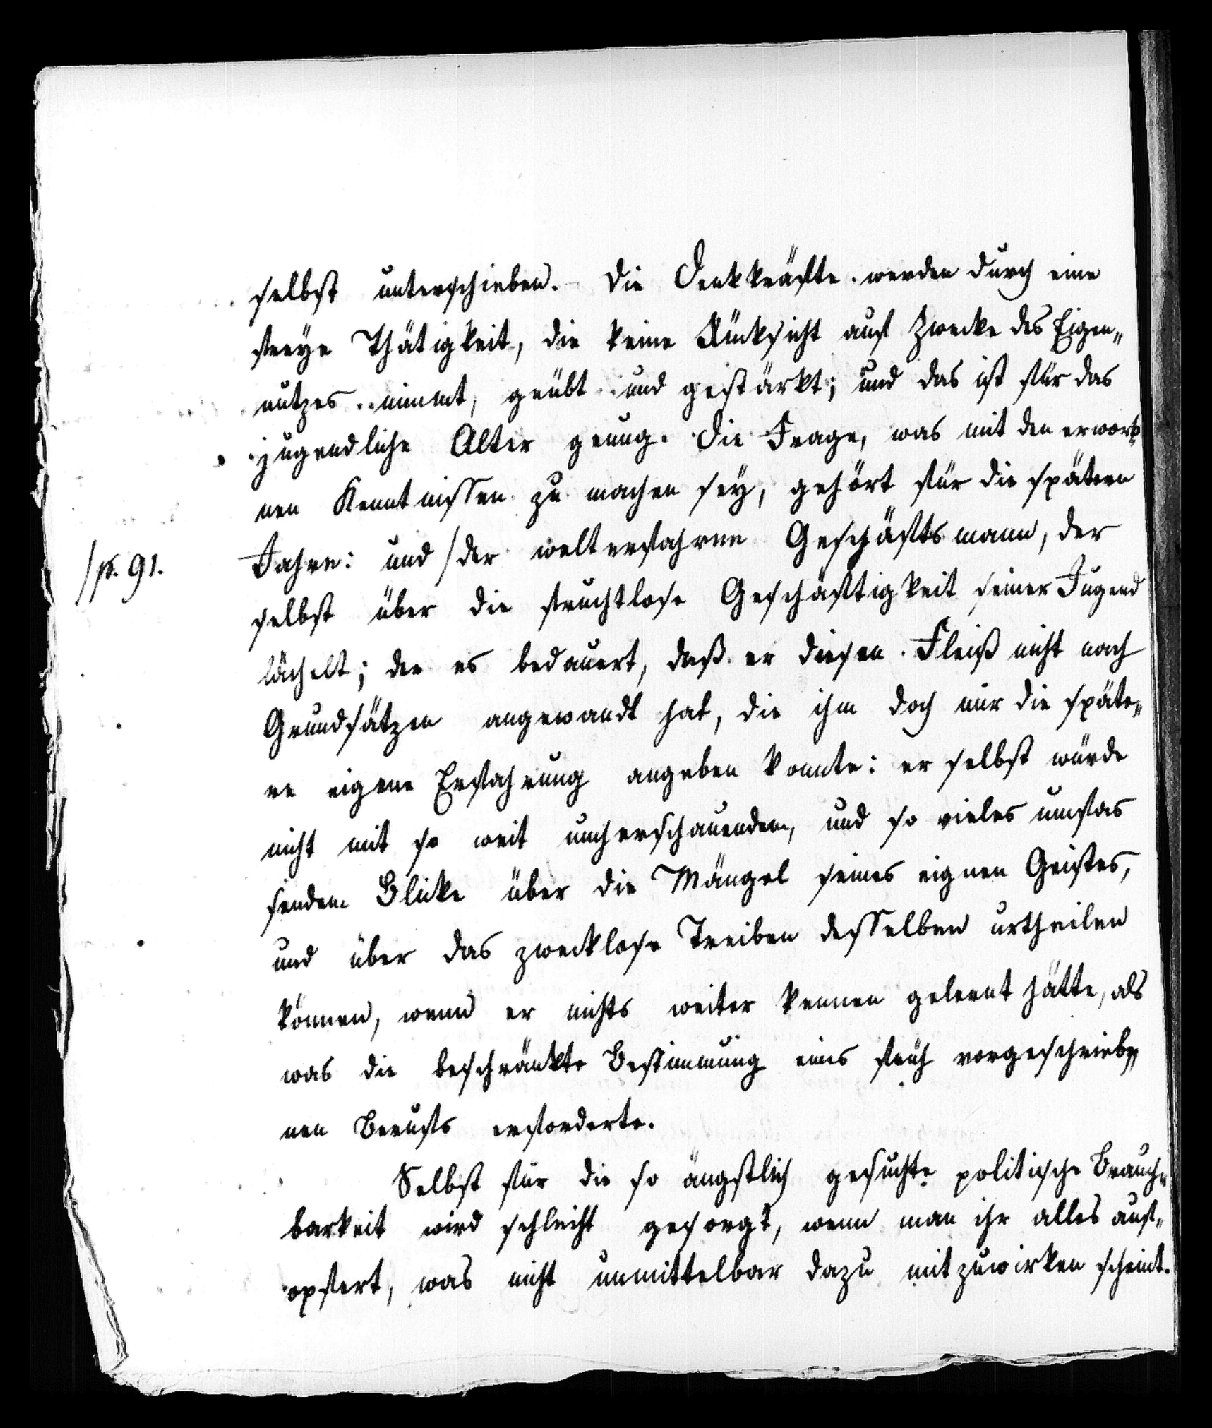 selbst unterschieben. Die Denkkräfte werden durch eine
freye Thätigkeit, die keine Rücksicht auf Zwecke des Eigen„
nutzes nimmt, geübt und gestärkt; und das ist für das
jugendliche Alter genug. Die Frage, was mit den erworb„
nen Kenntnissen zu machen sey, gehört für die spätern
/p. 91. Jahre: und /der welterfahrne Geschäftsmann, der
selbst über die fruchtlose Geschäftigkeit seiner Jugend
lächelt; der es bedauert, daß er diesen Fleiß nicht nach
Grundsätzen angewandt hat, die ihm doch nur die späte„
re eigene Erfahrung angeben konnte: er selbst würde
nicht mit so weit umherschauendem, und so vieles umfas
senden Blicke über die Mängel seines eignen Geistes,
und über das zwecklose Treiben desselben urtheilen
können, wenn er nichts weiter kennen gelernt hätte, als
was die beschränkte Bestimmung eines früh vorgeschrieb„
nen Berufs erforderte.
Selbst für die so ängstlich gesuchte politische Brauch„
barkeit wird schlecht gesorgt, wenn man ihr alles auf„
opfert, was nicht unmittelbar dazu mitzuwirken scheint.